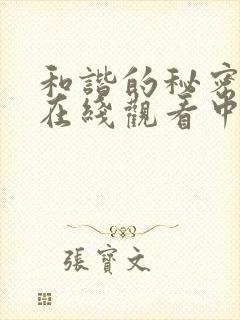 和諧的秘密
在綫觀看中
張寶文